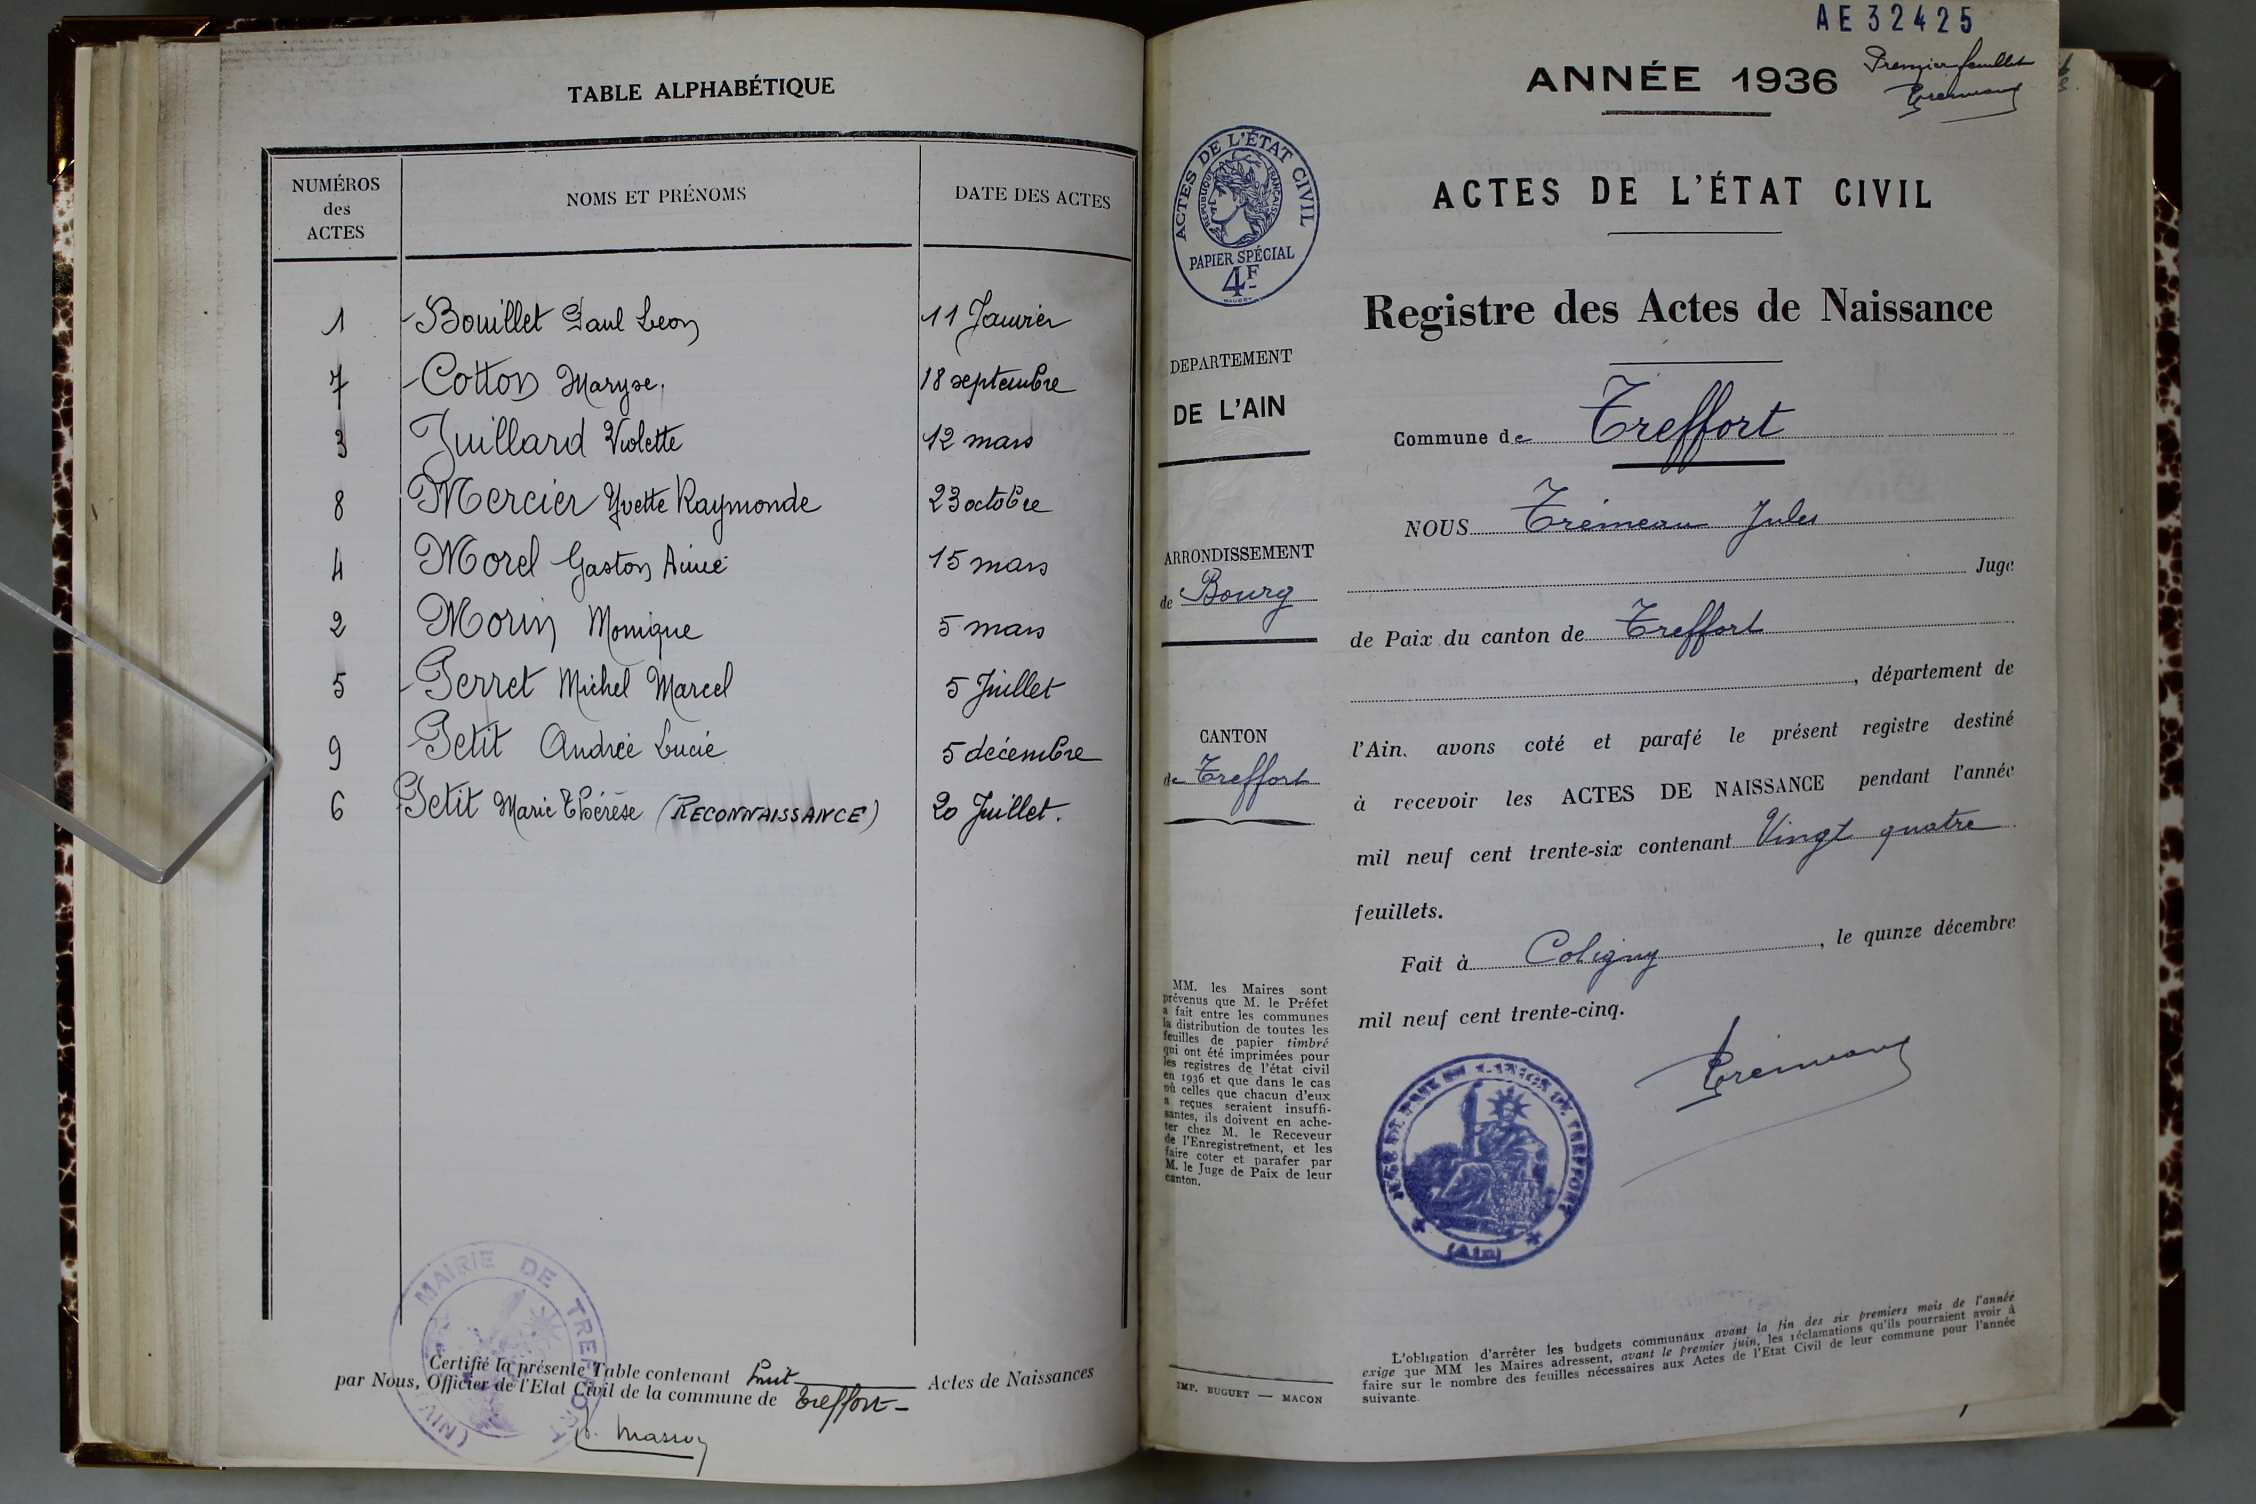 TABLE ALPHABÉTIQUE
NUMÉROS des ACTES NOMS ET PRÉNOMS DATE DES ACTES
1 Bouillet Paul Leon 11 Janvier
7 Cotton Maryse, 18 septembre
3 Juillard Violette 12 mars
8 Mercier Yvette Raymonde 23 octobre
4 Morel Gaston Aimé 15 mars
2 Morin Monique 5 mars
5 Perret Michel Marcel 5 Juillet
9 Petit Andrée Lucie 5 décembre
6 Petit Marie Thérèse (RECONNAISSANCE) 20 Juillet.
Certifié la présente Table contenant huit Actes de Naissances
par Nous, Officier de l'Etat Civil de la commune de Treffort
MAIRIE DE TREFFORT (AIN)
AE32425
Premier feuillet
ANNÉE 1936
ACTES DE L'ÉTAT CIVIL
RÉPUBLIQUE FRANÇAISE
PAPIER SPÉCIAL
4F
ACTES DE L'ÉTAT CIVIL
Registre des Actes de Naissance
DEPARTEMENT
DE L'AIN
ARRONDISSEMENT
de Bourg
CANTON
de Treffort
Commune de Treffort
NOUS Trémeau Jules
Juge
de Paix du canton de Treffort
, département de
l'Ain, avons coté et parafé le présent registre destiné
à recevoir les ACTES DE NAISSANCE pendant l'année
mil neuf cent trente-six contenant Vingt quatre
feuillets.
Fait à Coligny, le quinze décembre
mil neuf cent trente-cinq.
Trémeau
MM. les Maires sont
prévenus que M. le Préfet
a fait entre les communes
la distribution de toutes les
feuilles de papier timbré
qui ont été imprimées pour
les registres de l'état civil
en 1936 et que dans le cas
où celles que chacun d'eux
a reçues seraient insuffi-
santes, ils doivent en ache-
ter chez M. le Receveur
de l'Enregistrement, et les
faire coter et parafer par
M. le Juge de Paix de leur
canton.
TREFFORT
(Ain)
IMP. BUGUET — MACON
L'obligation d'arrêter les budgets communaux avant la fin des six premiers mois de l'année
exige que MM les Maires adressent, avant le premier juin, les réclamations qu'ils pourraient avoir à
faire sur le nombre des feuilles nécessaires aux Actes de l'Etat Civil de leur commune pour l'année
suivante.